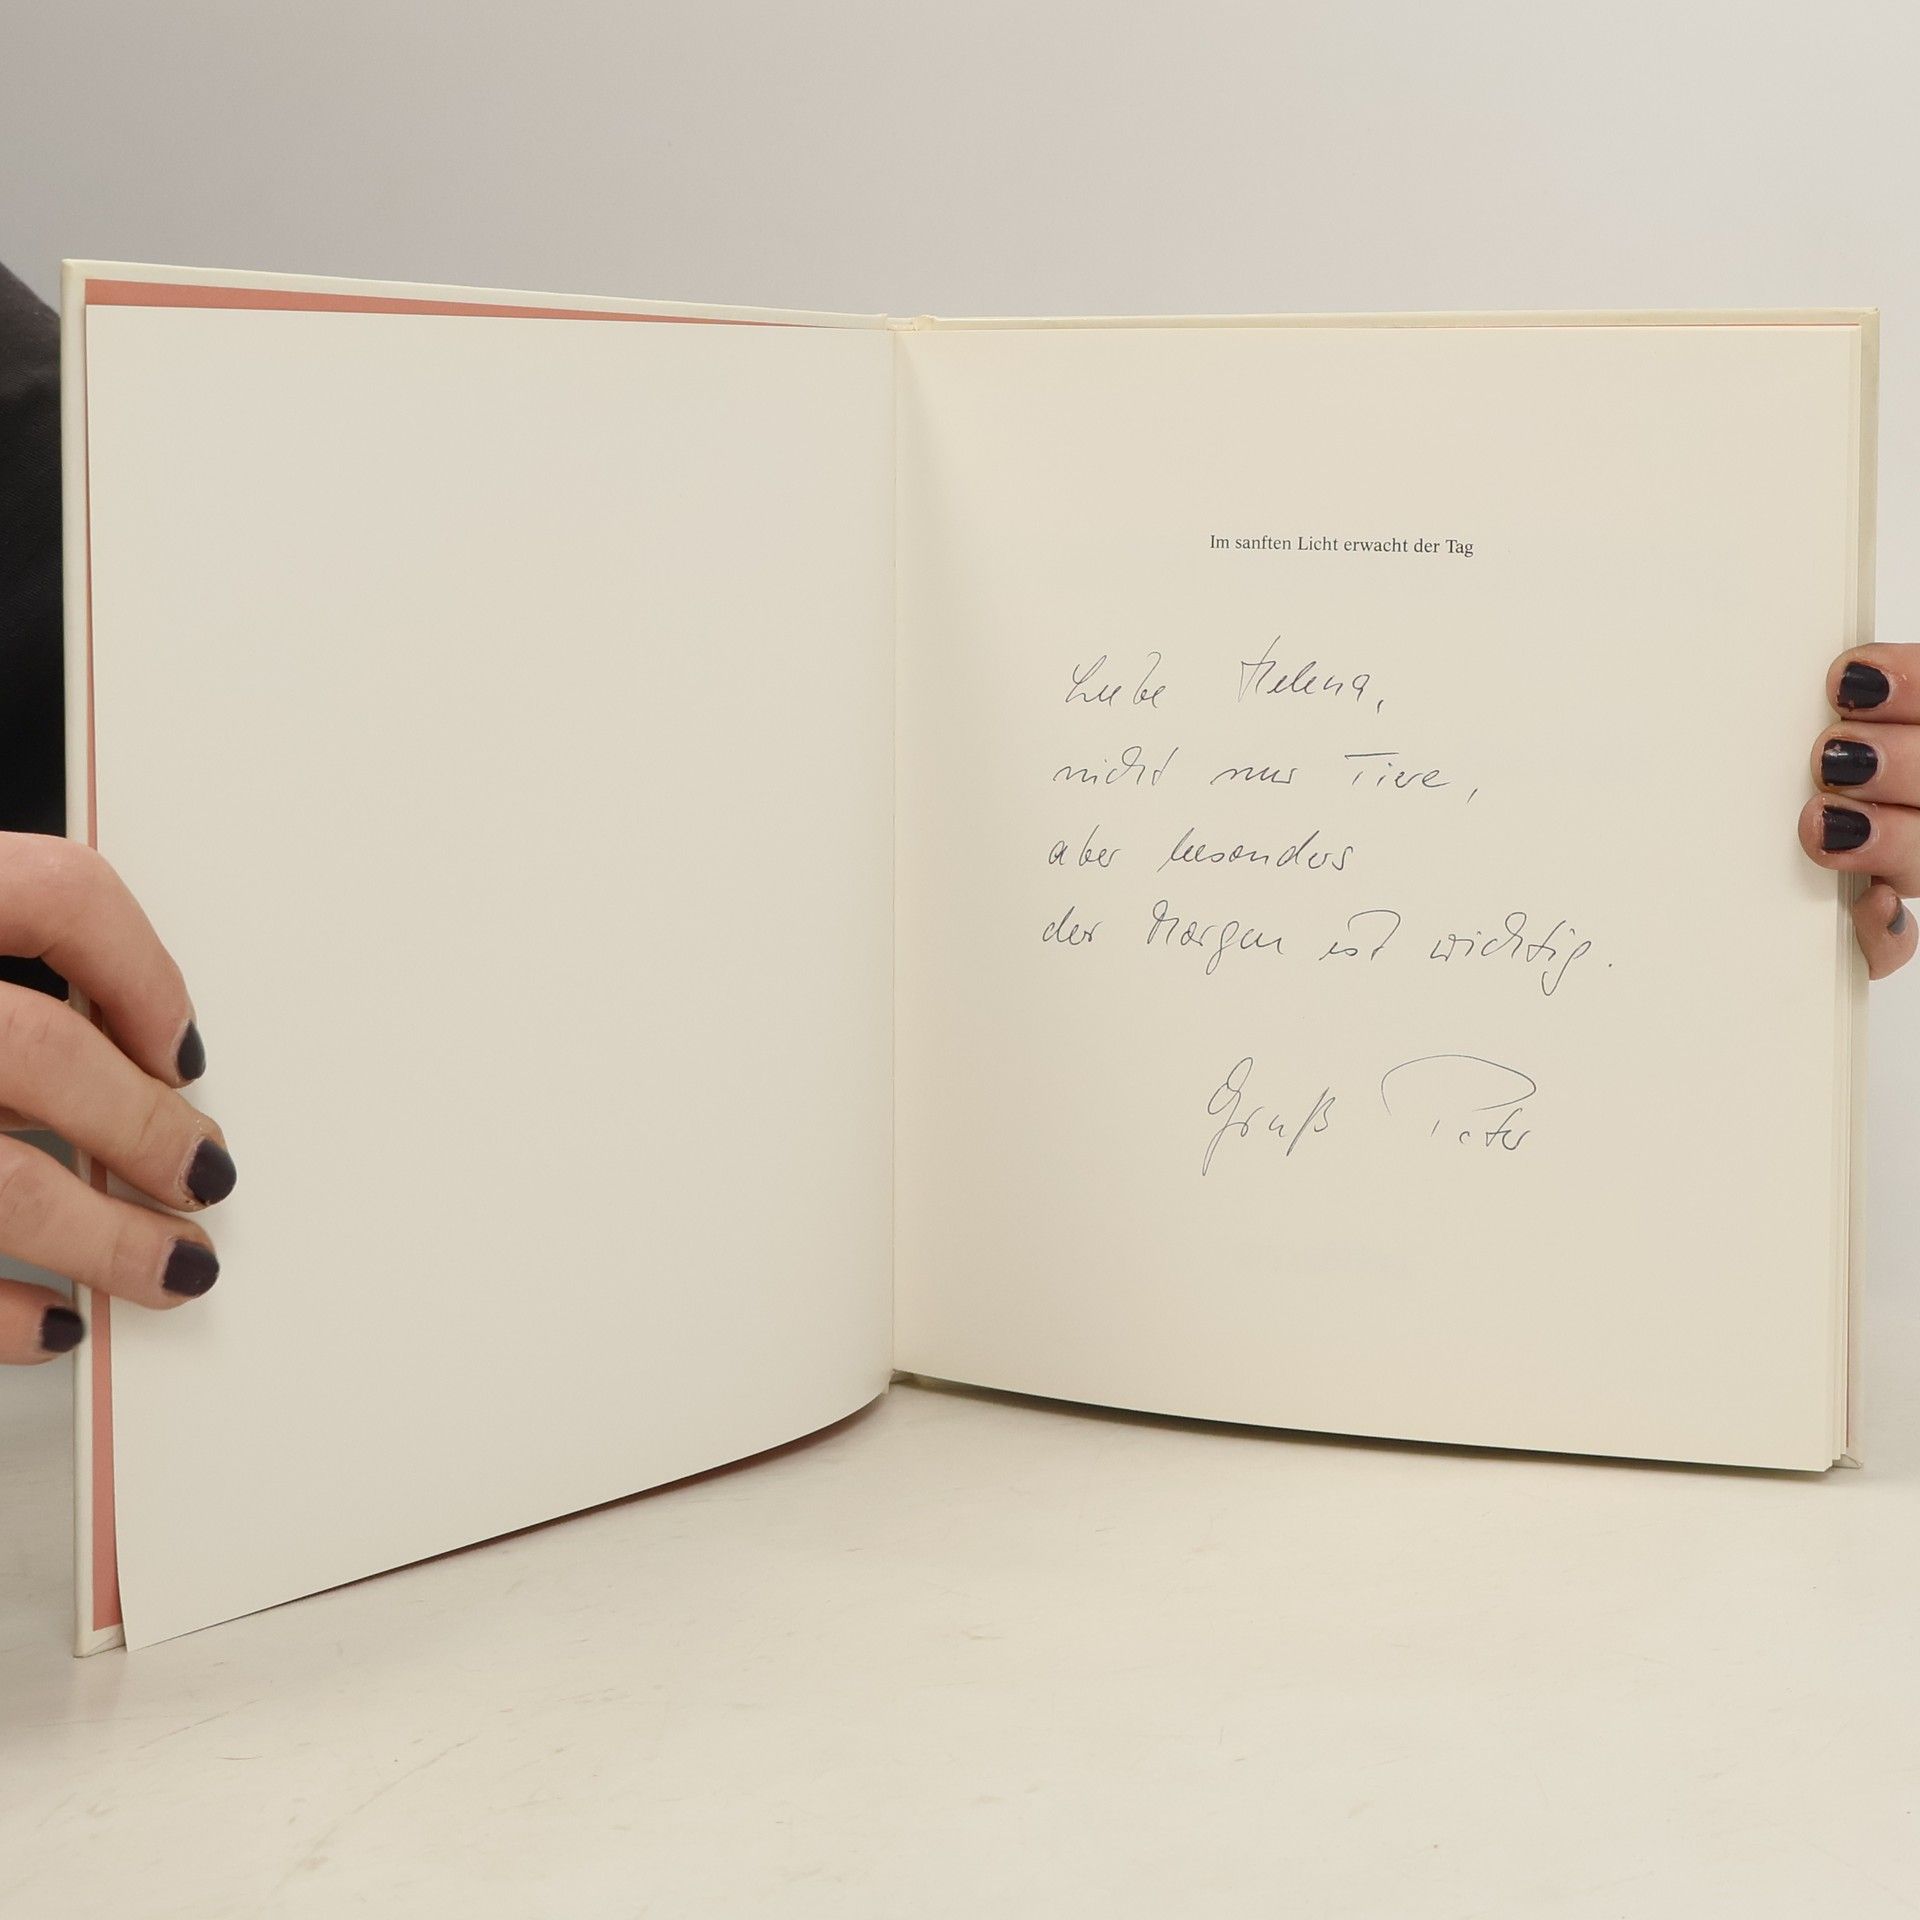 Im sanften Licht erwacht der Tag
Liebe Helena,
nicht nur Tiere,
aber besonders
der Morgen ist wichtig.
Gruß Peter